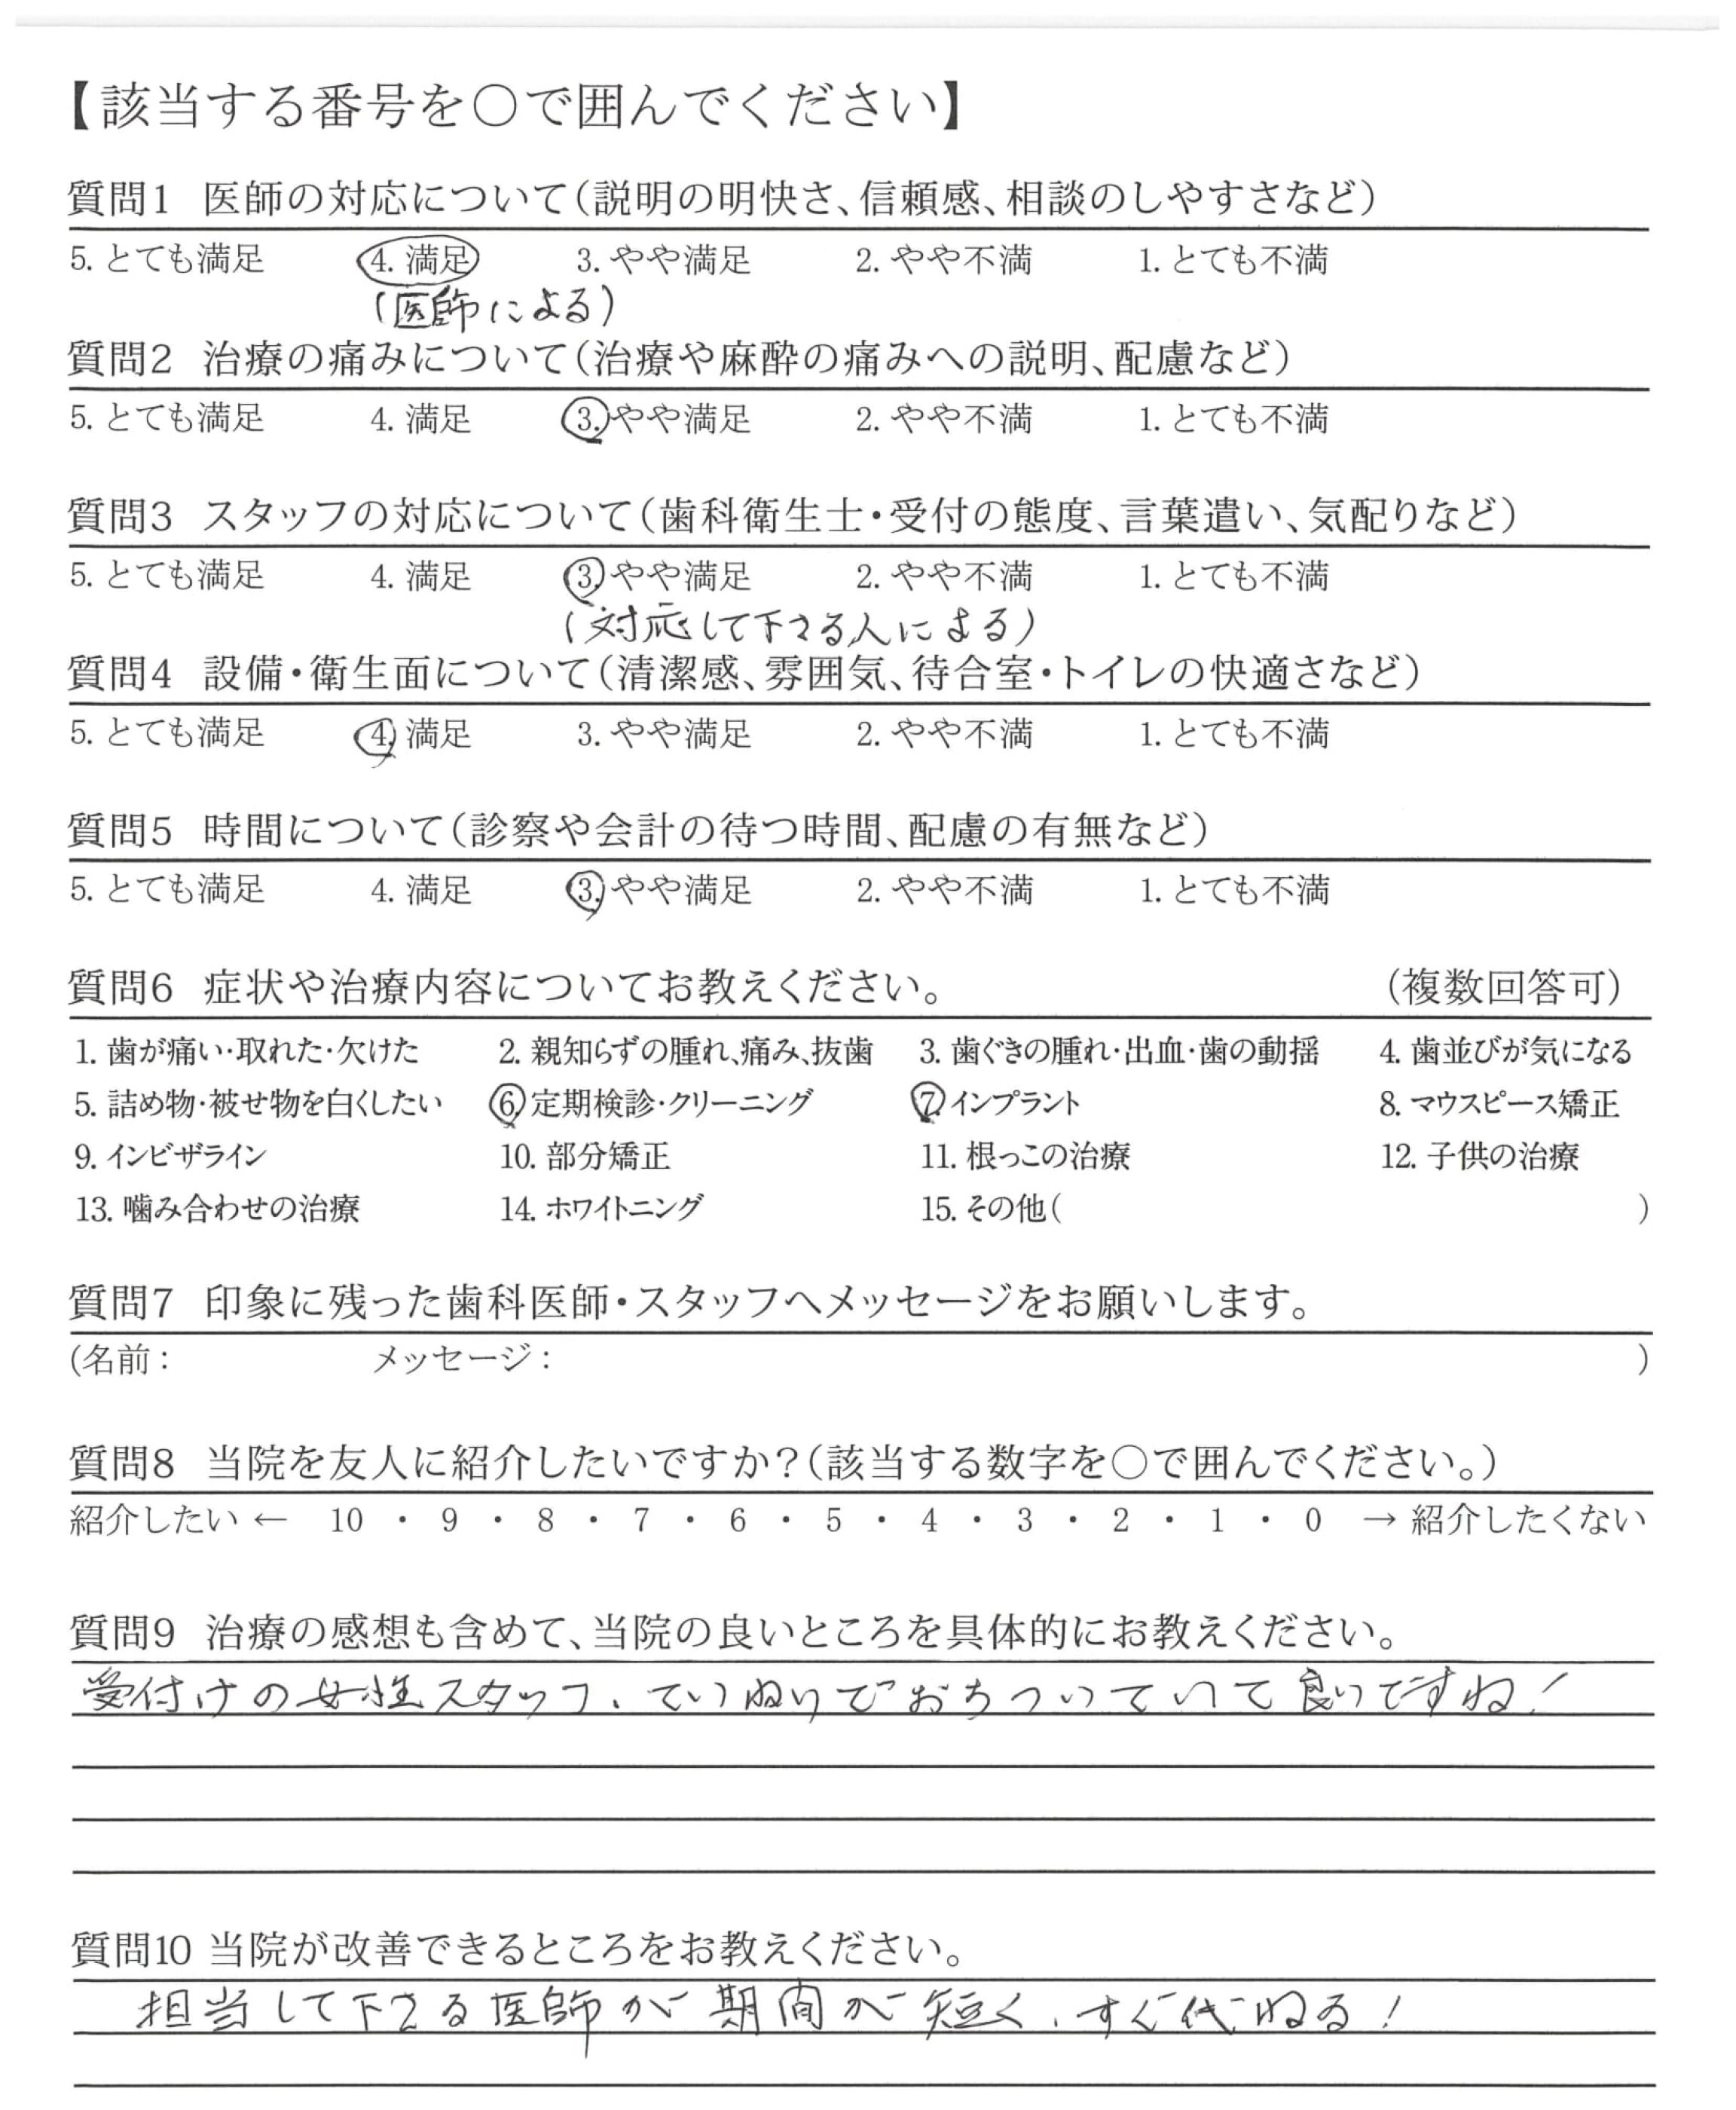 【該当する番号を○で囲んでください】
質問1 医師の対応について(説明の明快さ、信頼感、相談のしやすさなど)
5. とても満足 4. 満足 3. やや満足 2. やや不満 1. とても不満
(医師による)
質問2 治療の痛みについて(治療や麻酔の痛みへの説明、配慮など)
5. とても満足 4. 満足 3. やや満足 2. やや不満 1. とても不満
質問3 スタッフの対応について(歯科衛生士・受付の態度、言葉遣い、気配りなど)
5. とても満足 4. 満足 3. やや満足 2. やや不満 1. とても不満
(対応して下さる人による)
質問4 設備・衛生面について(清潔感、雰囲気、待合室・トイレの快適さなど)
5. とても満足 4. 満足 3. やや満足 2. やや不満 1. とても不満
質問5 時間について(診察や会計の待つ時間、配慮の有無など)
5. とても満足 4. 満足 3. やや満足 2. やや不満 1. とても不満
質問6 症状や治療内容についてお教えください。 (複数回答可)
1. 歯が痛い・取れた・欠けた 2. 親知らずの腫れ、痛み、抜歯 3. 歯ぐきの腫れ・出血・歯の動揺 4. 歯並びが気になる
5. 詰め物・被せ物を白くしたい 6. 定期検診・クリーニング 7. インプラント 8. マウスピース矯正
9. インビザライン 10. 部分矯正 11. 根っこの治療 12. 子供の治療
13. 噛み合わせの治療 14. ホワイトニング 15. その他( )
質問7 印象に残った歯科医師・スタッフへメッセージをお願いします。
(名前: メッセージ: )
質問8 当院を友人に紹介したいですか?(該当する数字を○で囲んでください。)
紹介したい ← 10 ・ 9 ・ 8 ・ 7 ・ 6 ・ 5 ・ 4 ・ 3 ・ 2 ・ 1 ・ 0 → 紹介したくない
質問9 治療の感想も含めて、当院の良いところを具体的にお教えください。
受付けの女性スタッフ、ていねいでおちついていて良いですね!
質問10 当院が改善できるところをお教えください。
担当して下さる医師が期間が短く、すぐ代わる!